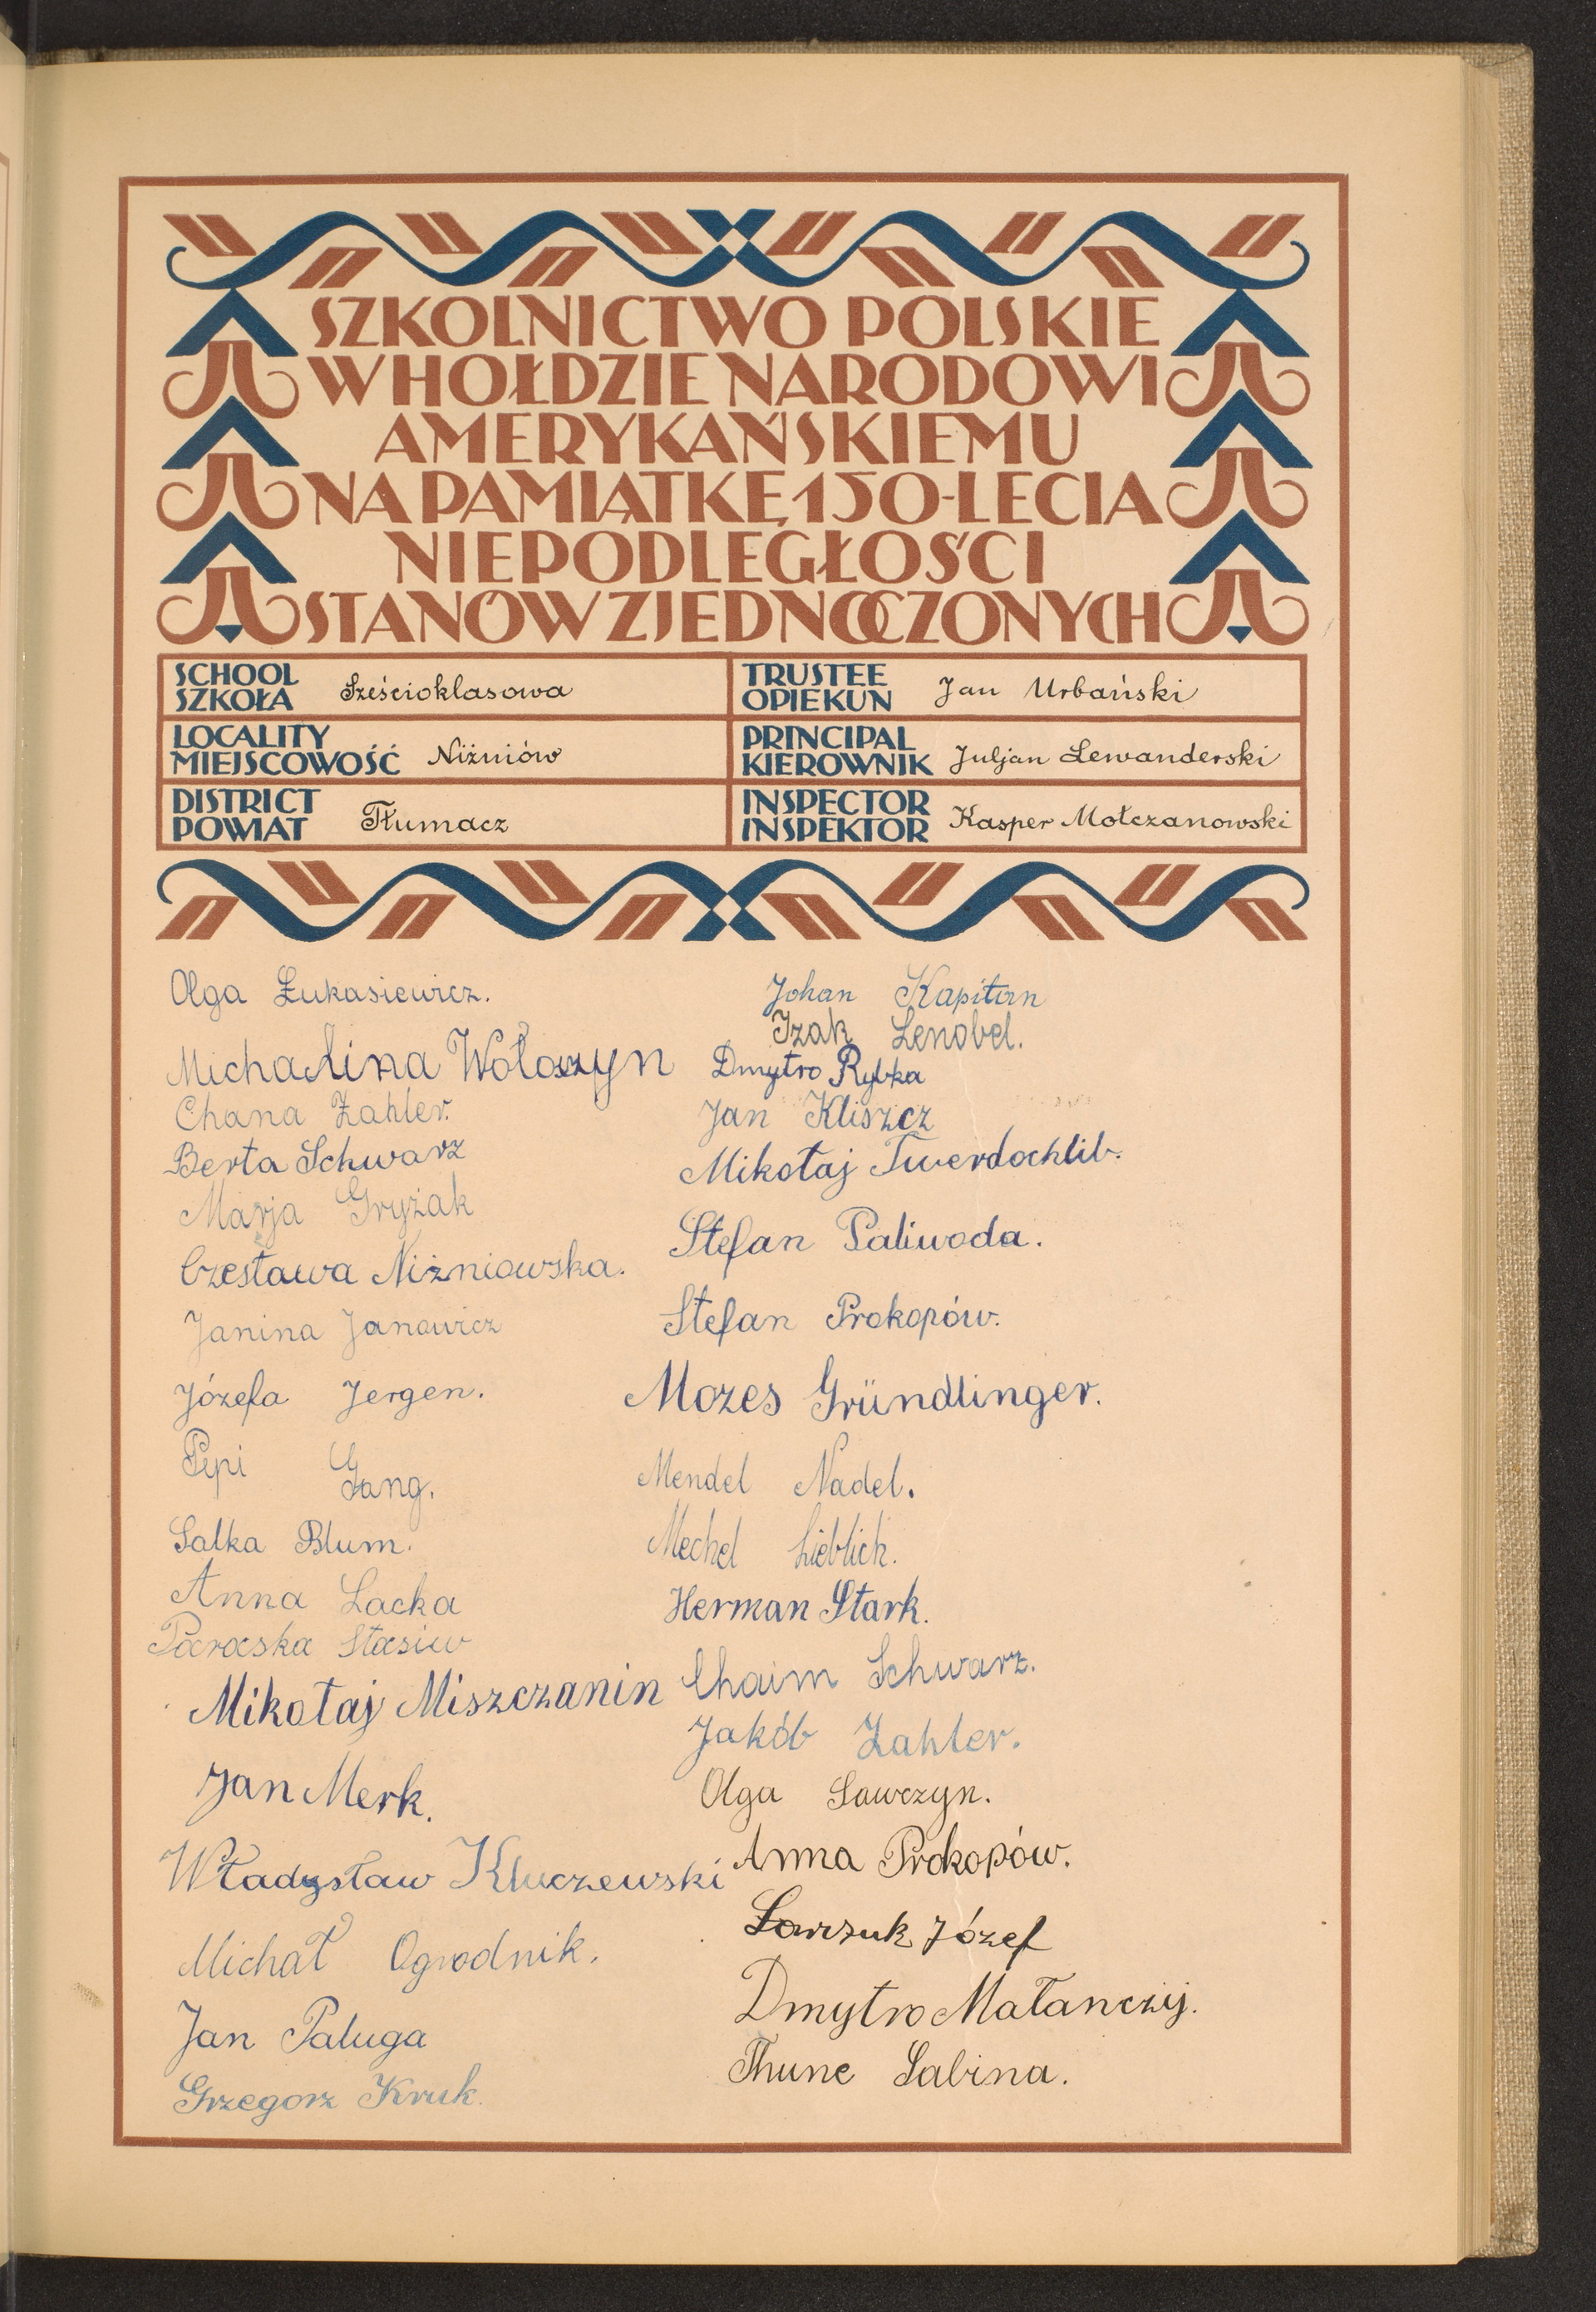 SZKOLNICTWO POLSKIE
W HOŁDZIE NARODOWI
AMERYKAŃSKIEMU
NA PAMIĄTKĘ 150-LECIA
NIEPODLEGŁOŚCI
STANÓW ZJEDNOCZONYCH
SCHOOL
SZKOŁA Sześcioklasowa
TRUSTEE
OPIEKUN Jan Urbański
LOCALITY
MIEJSCOWOŚĆ Niżniów
PRINCIPAL
KIEROWNIK Juljan Lewanderski
DISTRICT
POWIAT Tłumacz
INSPECTOR
INSPEKTOR Kasper Mołczanowski
Olga Łukasiewicz.
Michalina Wołoszyn
Chana Zahler.
Berta Schwarz
Marja Gryżak
Czesława Niżniowska.
Janina Janowicz
Józefa Jergen.
Pepi Gang.
Salka Blum.
Anna Lacka
Paraska Stasiw
Mikołaj Miszczanin
Jan Merk.
Władysław Kluczewski
Michał Ogrodnik.
Jan Paluga
Grzegorz Kruk.
Johan Kapitan
Izak Lenobel.
Dmytro Rybka
Jan Kliszcz
Mikołaj Twerdochlib.
Stefan Paliwoda.
Stefan Prokopów.
Mozes Gründlinger.
Mendel Nadel.
Mechel Lieblich.
Herman Stark.
Chaim Schwarz.
Jakób Zahler.
Olga Sawczyn.
Anna Prokopów.
Józef
Dmytro Małanczij.
Thune Sabina.